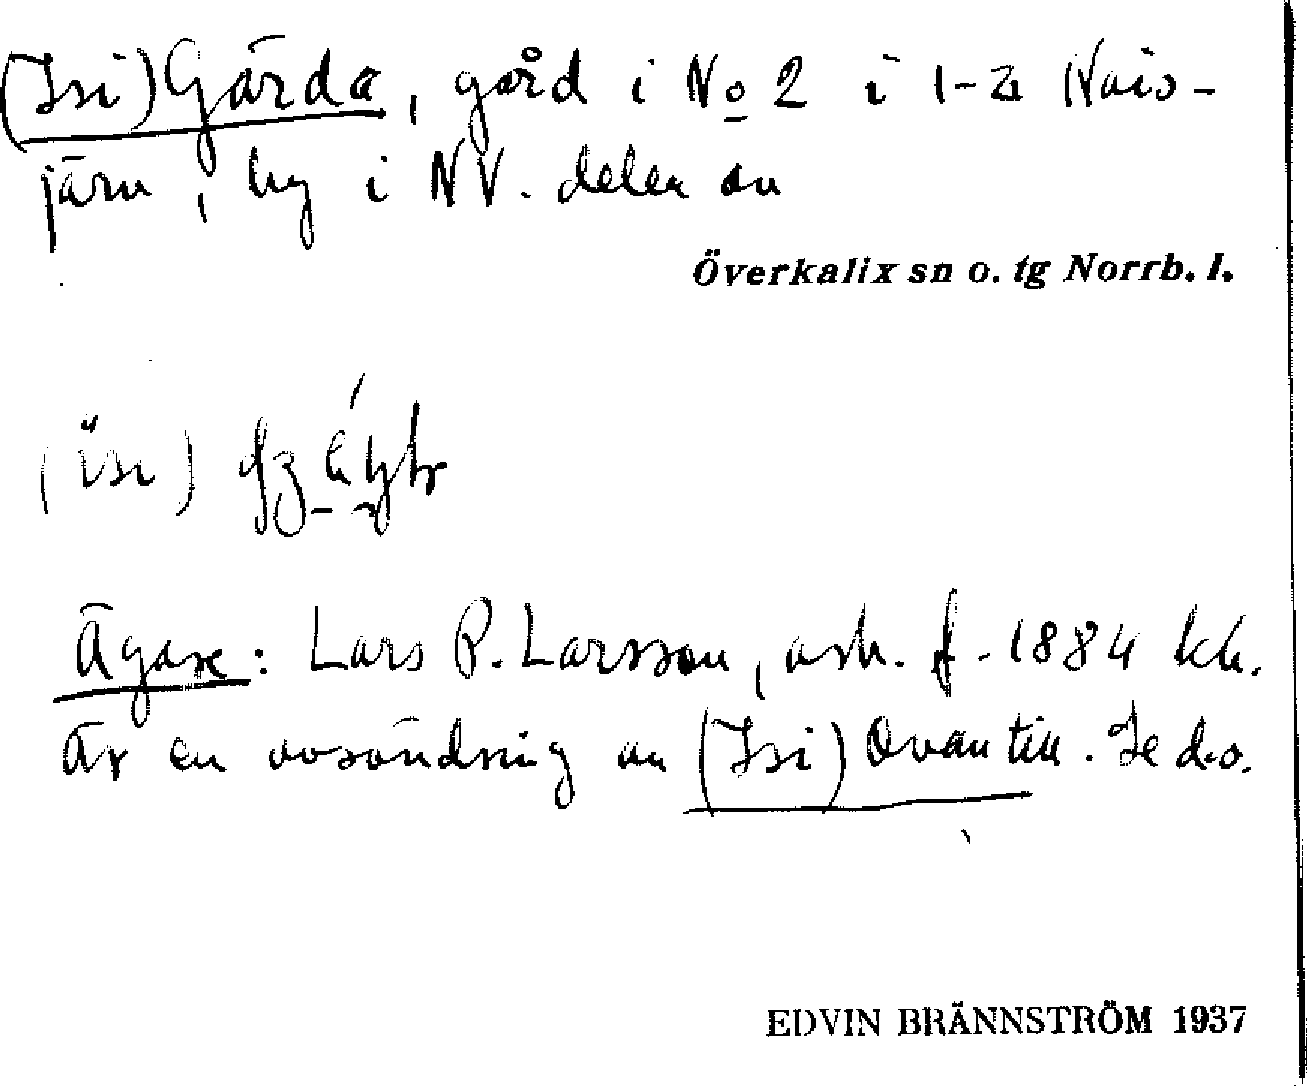 (Isi)Gärda, gård i No 2 i 1-a Nais-
järv, by i NV. delen av
Överkalix sn o. tg Norrb. l.
(isi)
Ägare: Lars P. Larsson, arb. f. 1884 kh.
Är en avsöndring av (Isi) Ovantill. Se d.o.
EDVIN BRÄNNSTRÖM 1937